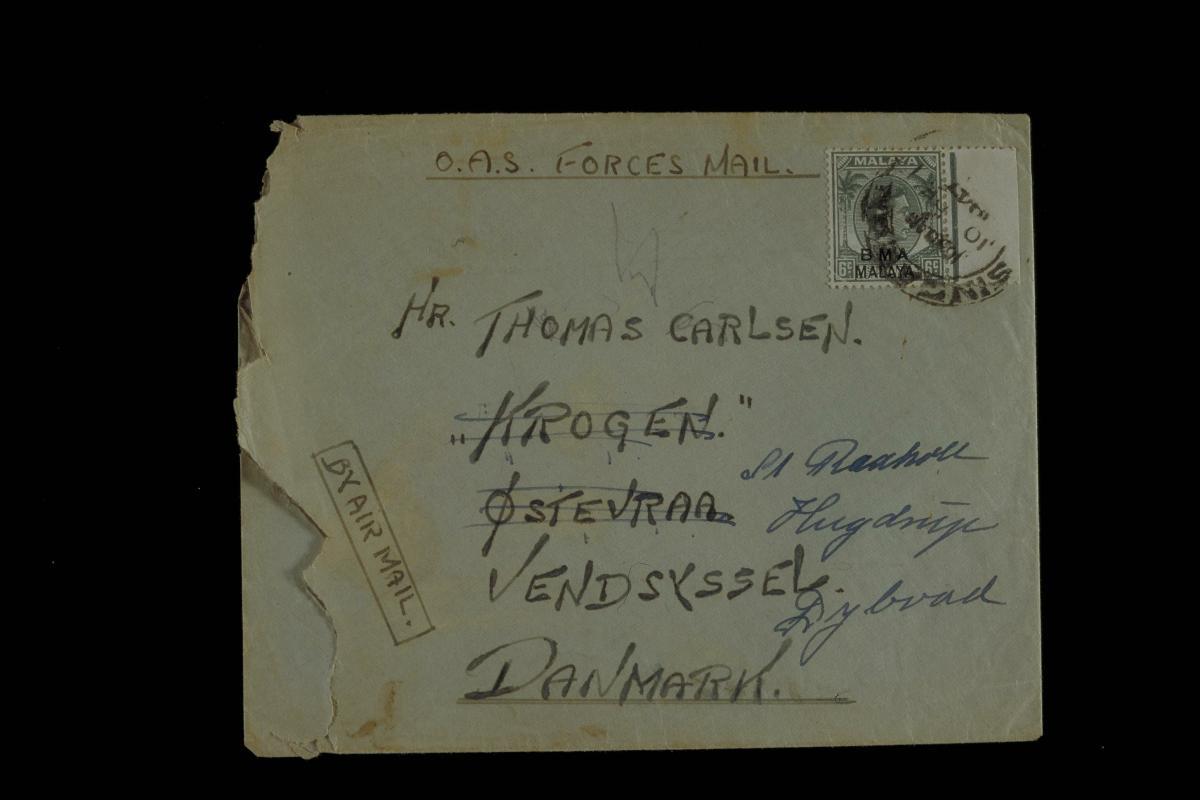 O.A.S. FORCES MAIL.
MALAYA
6c 6c
BMA
MALAYA
HR. THOMAS CARLSEN.
"KROGEN."
ØSTEVRAA
St Raaholt
Hugdrup
VENDSYSSEL.
Dybvad
DANMARK.
BY AIR MAIL.